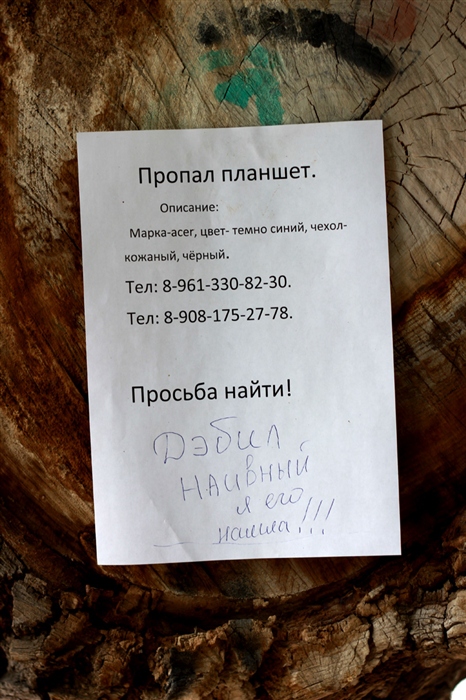 Пропал планшет.
Описание:
Марка-acer, цвет- темно синий, чехол-
кожаный, чёрный.
Тел: 8-961-330-82-30.
Тел: 8-908-175-27-78.
Просьба найти!
Дэбил
наивный
я его
нашла!!!